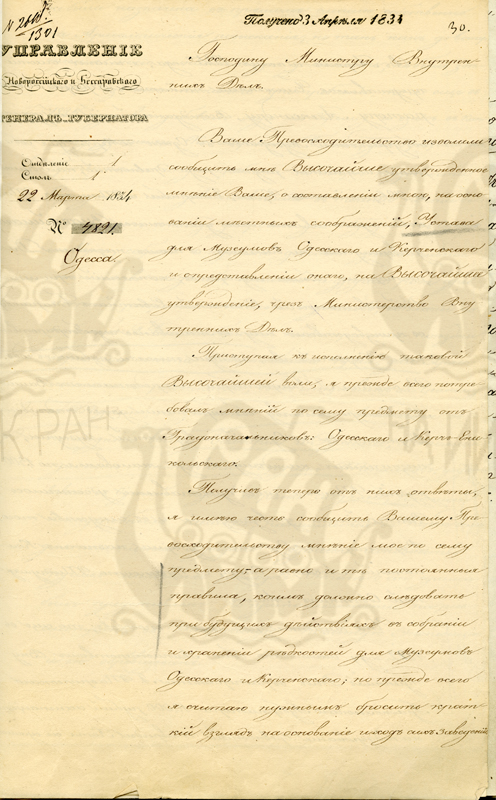 Получено 3 Апреля 1834
30.
1301
УПРАВЛЕНІЕ
Новороссійскаго и Бессарабскаго
ГЕНЕРАЛЪ-ГУБЕРНАТОРА
Отдѣленіе 1
Столъ 1
22 Марта 1834
№ 4821.
Одесса.
Господину Министру Внутрен-
нихъ Дѣлъ.
Ваше Превосходительство изволили
сообщить мнѣ Высочайше утвержденное
мнѣніе Ваше, о составленіи мною, на осно-
ваніи мѣстныхъ соображеній, Устава
для Музеумовъ Одесскаго и Керченскаго
и о представленіи онаго, на Высочайшее
утвержденіе, чрезъ Министерство Вну-
треннихъ Дѣлъ.
Приступая къ исполненію таковой
Высочайшей воли, я прежде всего потре-
бовалъ мнѣній по сему предмету отъ
Градоначальниковъ: Одесскаго и Керчь-Ени-
кольскаго.
Получивъ теперь отъ нихъ отвѣты,
я имѣю честь сообщить Вашему Пре-
восходительству мнѣніе мое по сему
предмету, а равно и тѣ постоянныя
правила, коимъ должно слѣдовать
при будущихъ дѣйствіяхъ въ собраніи
и храненіи рѣдкостей для Музеумовъ
Одесскаго и Керченскаго; но прежде всего
я считаю нужнымъ бросить крат-
кій взглядъ на основаніе и ходъ сихъ заведеній
КРАН